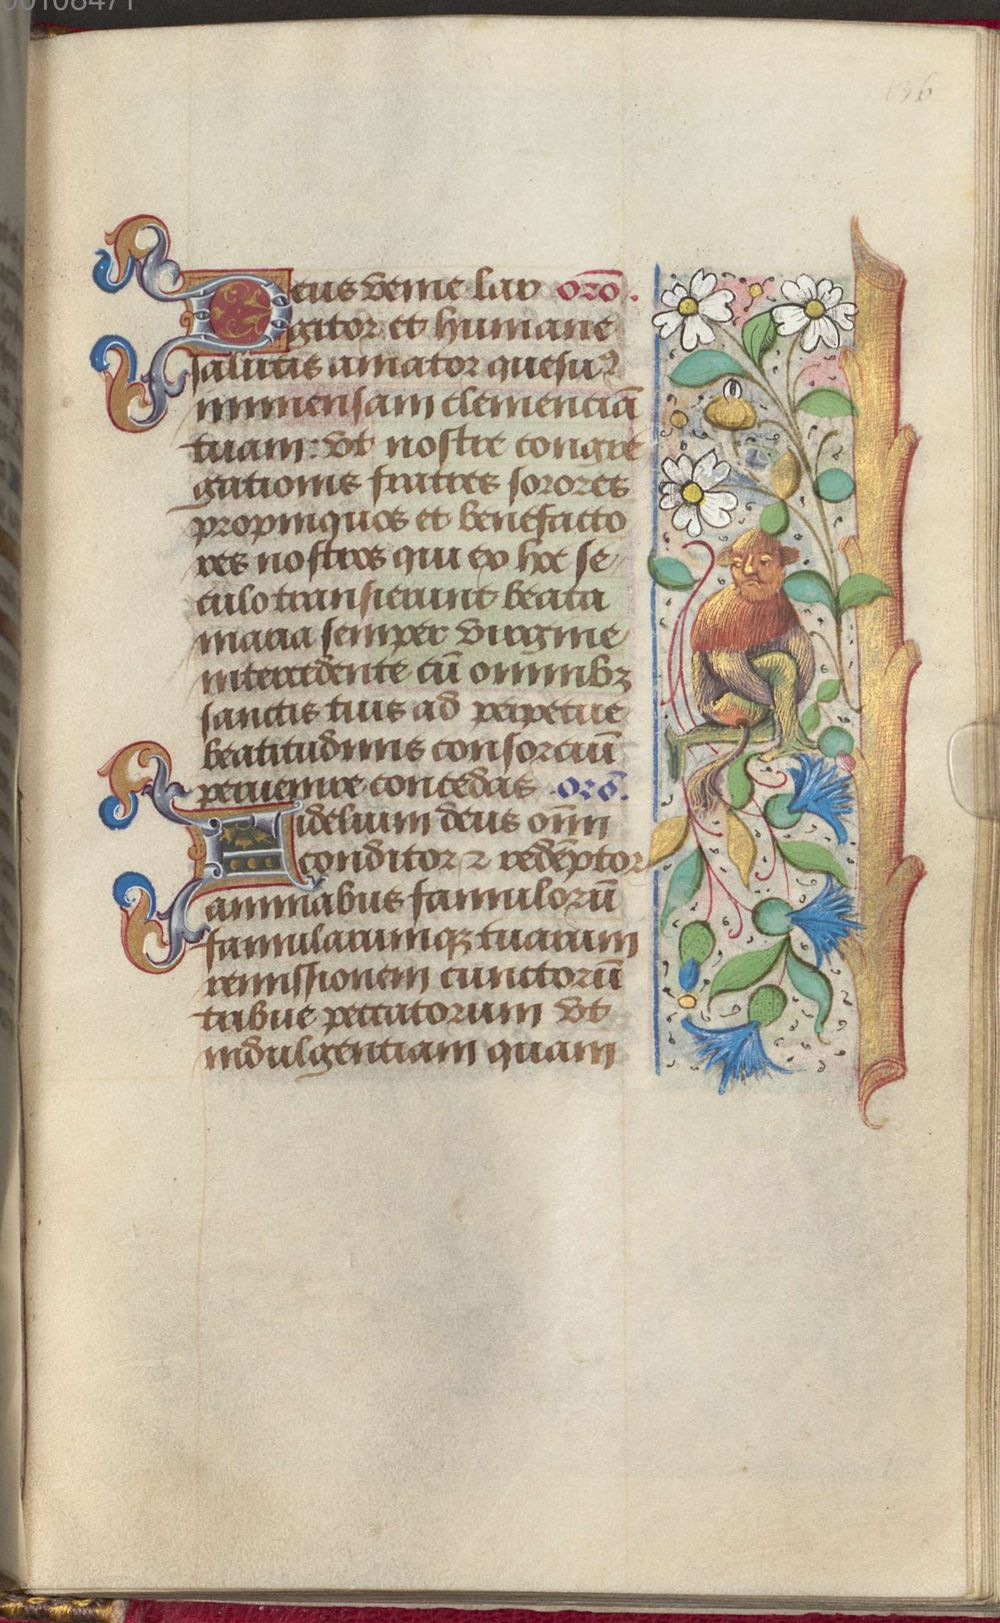 00108471
136
Deus venie lar orō.
gitor et humane
salutis amator quesuꝰ
immensam clemenciā
tuam: vt nostre congre
gationis fratres sorores
propinquos et benefacto
res nostros qui ex hoc se
culo transierunt beata
maria semper virgine
intercedente cū omnibꝫ
sanctis tuis ad perpetue
beatitudinis consorciū
peruenire concedas orō.
Fidelium deus oīm
conditor ⁊ redēptor
animabus famulorū
famularumqꝫ tuarum
remissionem cunctorū
tribue peccatorum vt
indulgentiam quam